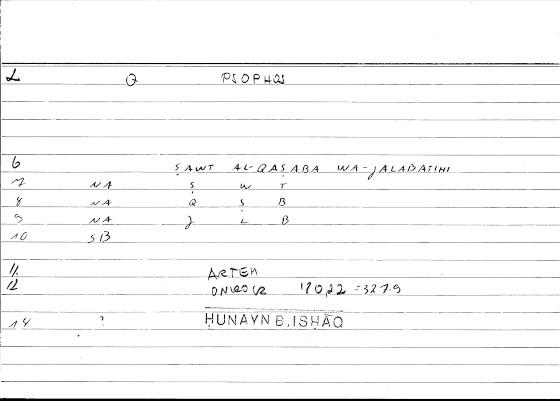 L Q PSOPHOS
6 ṢAWT AL-QAṢABA WA-JALABATIHI
7 NA Ṣ W T
8 NA Q Ṣ B
9 NA J L B
10 SB
11 ARTEM
12 ONIROCR 170,22 =327.9
14 ? ḤUNAYN B. ISḤĀQ